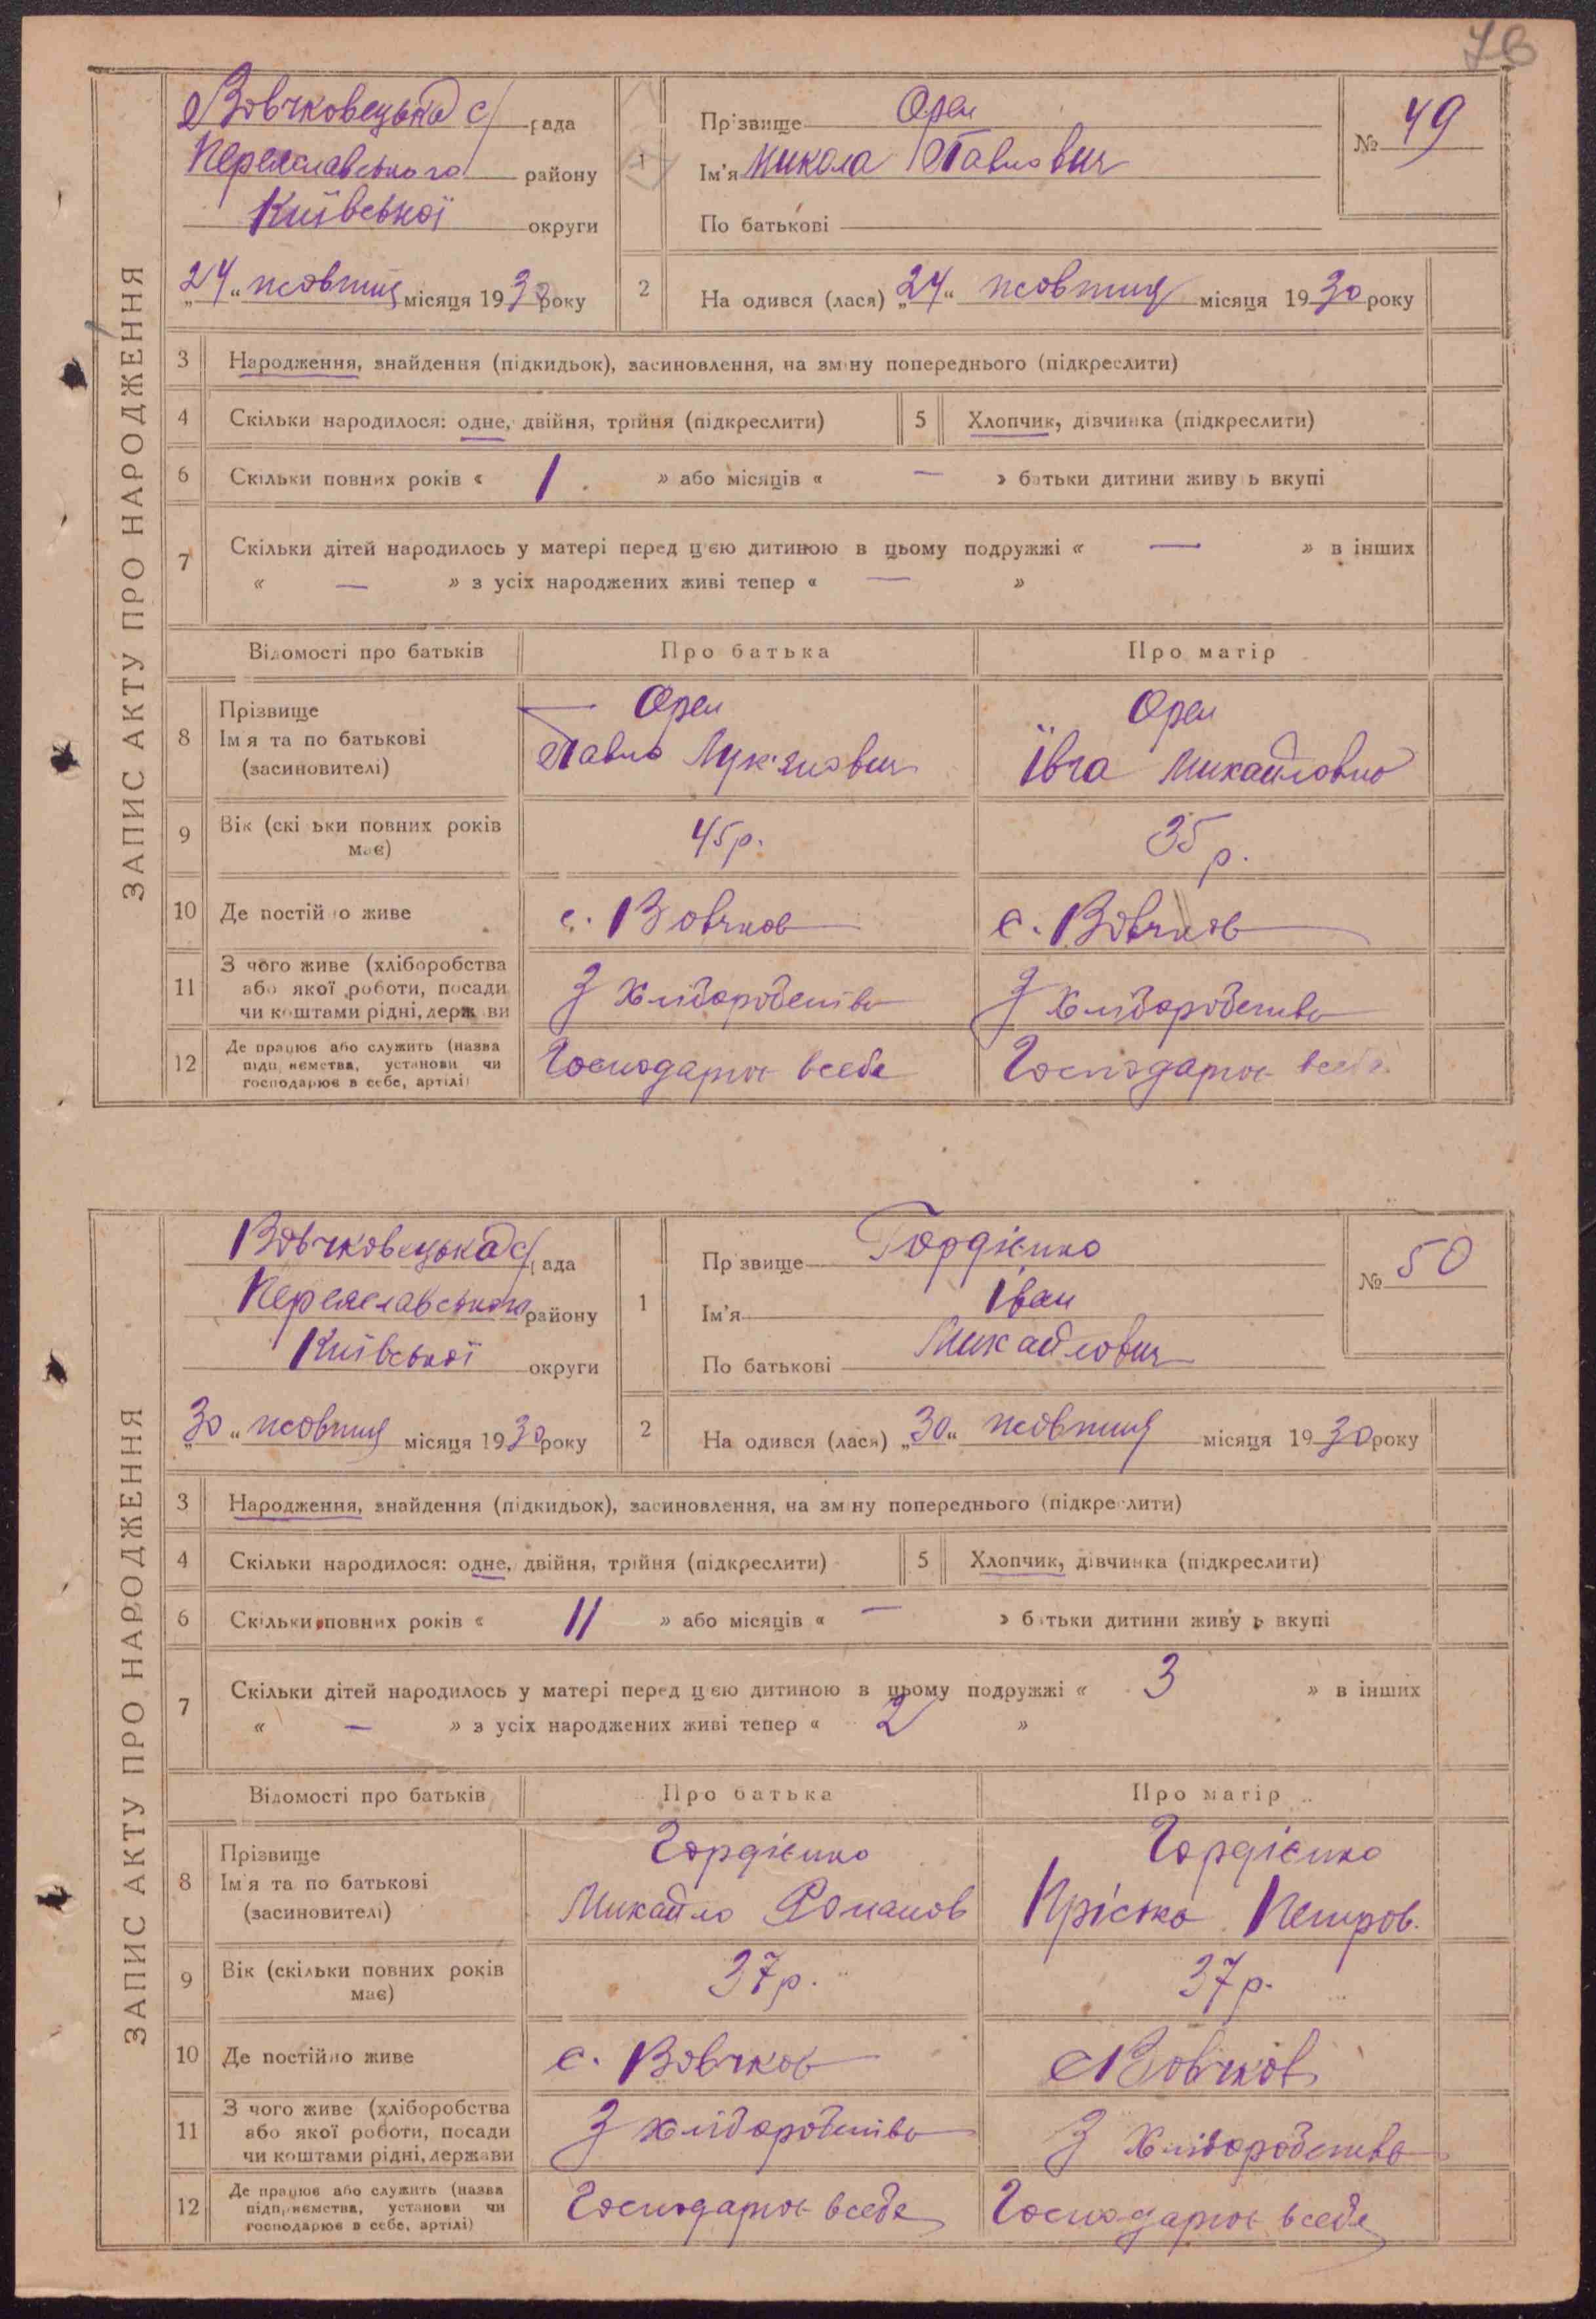 78
ЗАПИС АКТУ ПРО НАРОДЖЕННЯ
Вовчковецька с/рада
Переяславського району
Київської округи
„24“ жовтня місяця 1930 року
1
Прізвище Орел
Ім'я Микола Павлович
По батькові
№ 49
2
На одився (лася) „24“ жовтня місяця 1930 року
3 Народження, знайдення (підкидьок), засиновлення, на зміну попереднього (підкреслити)
4 Скільки народилося: одне, двійня, трійня (підкреслити)
5 Хлопчик, дівчинка (підкреслити)
6 Скільки повних років « 1. » або місяців « — » батьки дитини живуть вкупі
7 Скільки дітей народилось у матері перед цією дитиною в цьому подружжі « — » в інших
« — » з усіх народжених живі тепер « — »
Відомості про батьків Про батька Про матір
8 Прізвище Орел Орел
Ім'я та по батькові Павло Лук'янович Ївга Михайловно
(засиновителі)
9 Вік (скільки повних років має) 45 р. 35 р.
10 Де постійно живе с. Вовчков с. Вовчков
11 З чого живе (хліборобства або якої роботи, посади чи коштами рідні, держави З хліборобства З хліборобства
12 Де працює або служить (назва підприємства, установи чи господарює в себе, артілі) Господарює всебе Господарює всебе
ЗАПИС АКТУ ПРО НАРОДЖЕННЯ
Вовчковецька с/рада
Переяславського району
Київської округи
„30“ жовтня місяця 1930 року
1
Прізвище Гордієнко
Ім'я Іван
По батькові Михайлович
№ 50
2
На одився (лася) „30“ жовтня місяця 1930 року
3 Народження, знайдення (підкидьок), засиновлення, на зміну попереднього (підкреслити)
4 Скільки народилося: одне, двійня, трійня (підкреслити)
5 Хлопчик, дівчинка (підкреслити)
6 Скільки повних років « 11 » або місяців « — » батьки дитини живуть вкупі
7 Скільки дітей народилось у матері перед цією дитиною в цьому подружжі « 3 » в інших
« — » з усіх народжених живі тепер « 2 »
Відомості про батьків Про батька Про матір
8 Прізвище Гордієнко Гордієнко
Ім'я та по батькові Михайло Романов Пріська Петров.
(засиновителі)
9 Вік (скільки повних років має) 37 р. 37 р.
10 Де постійно живе с. Вовчков с Вовчков
11 З чого живе (хліборобства або якої роботи, посади чи коштами рідні, держави З хліборобства З хліборобства
12 Де працює або служить (назва підприємства, установи чи господарює в себе, артілі) Господарює всебе Господарює всебе